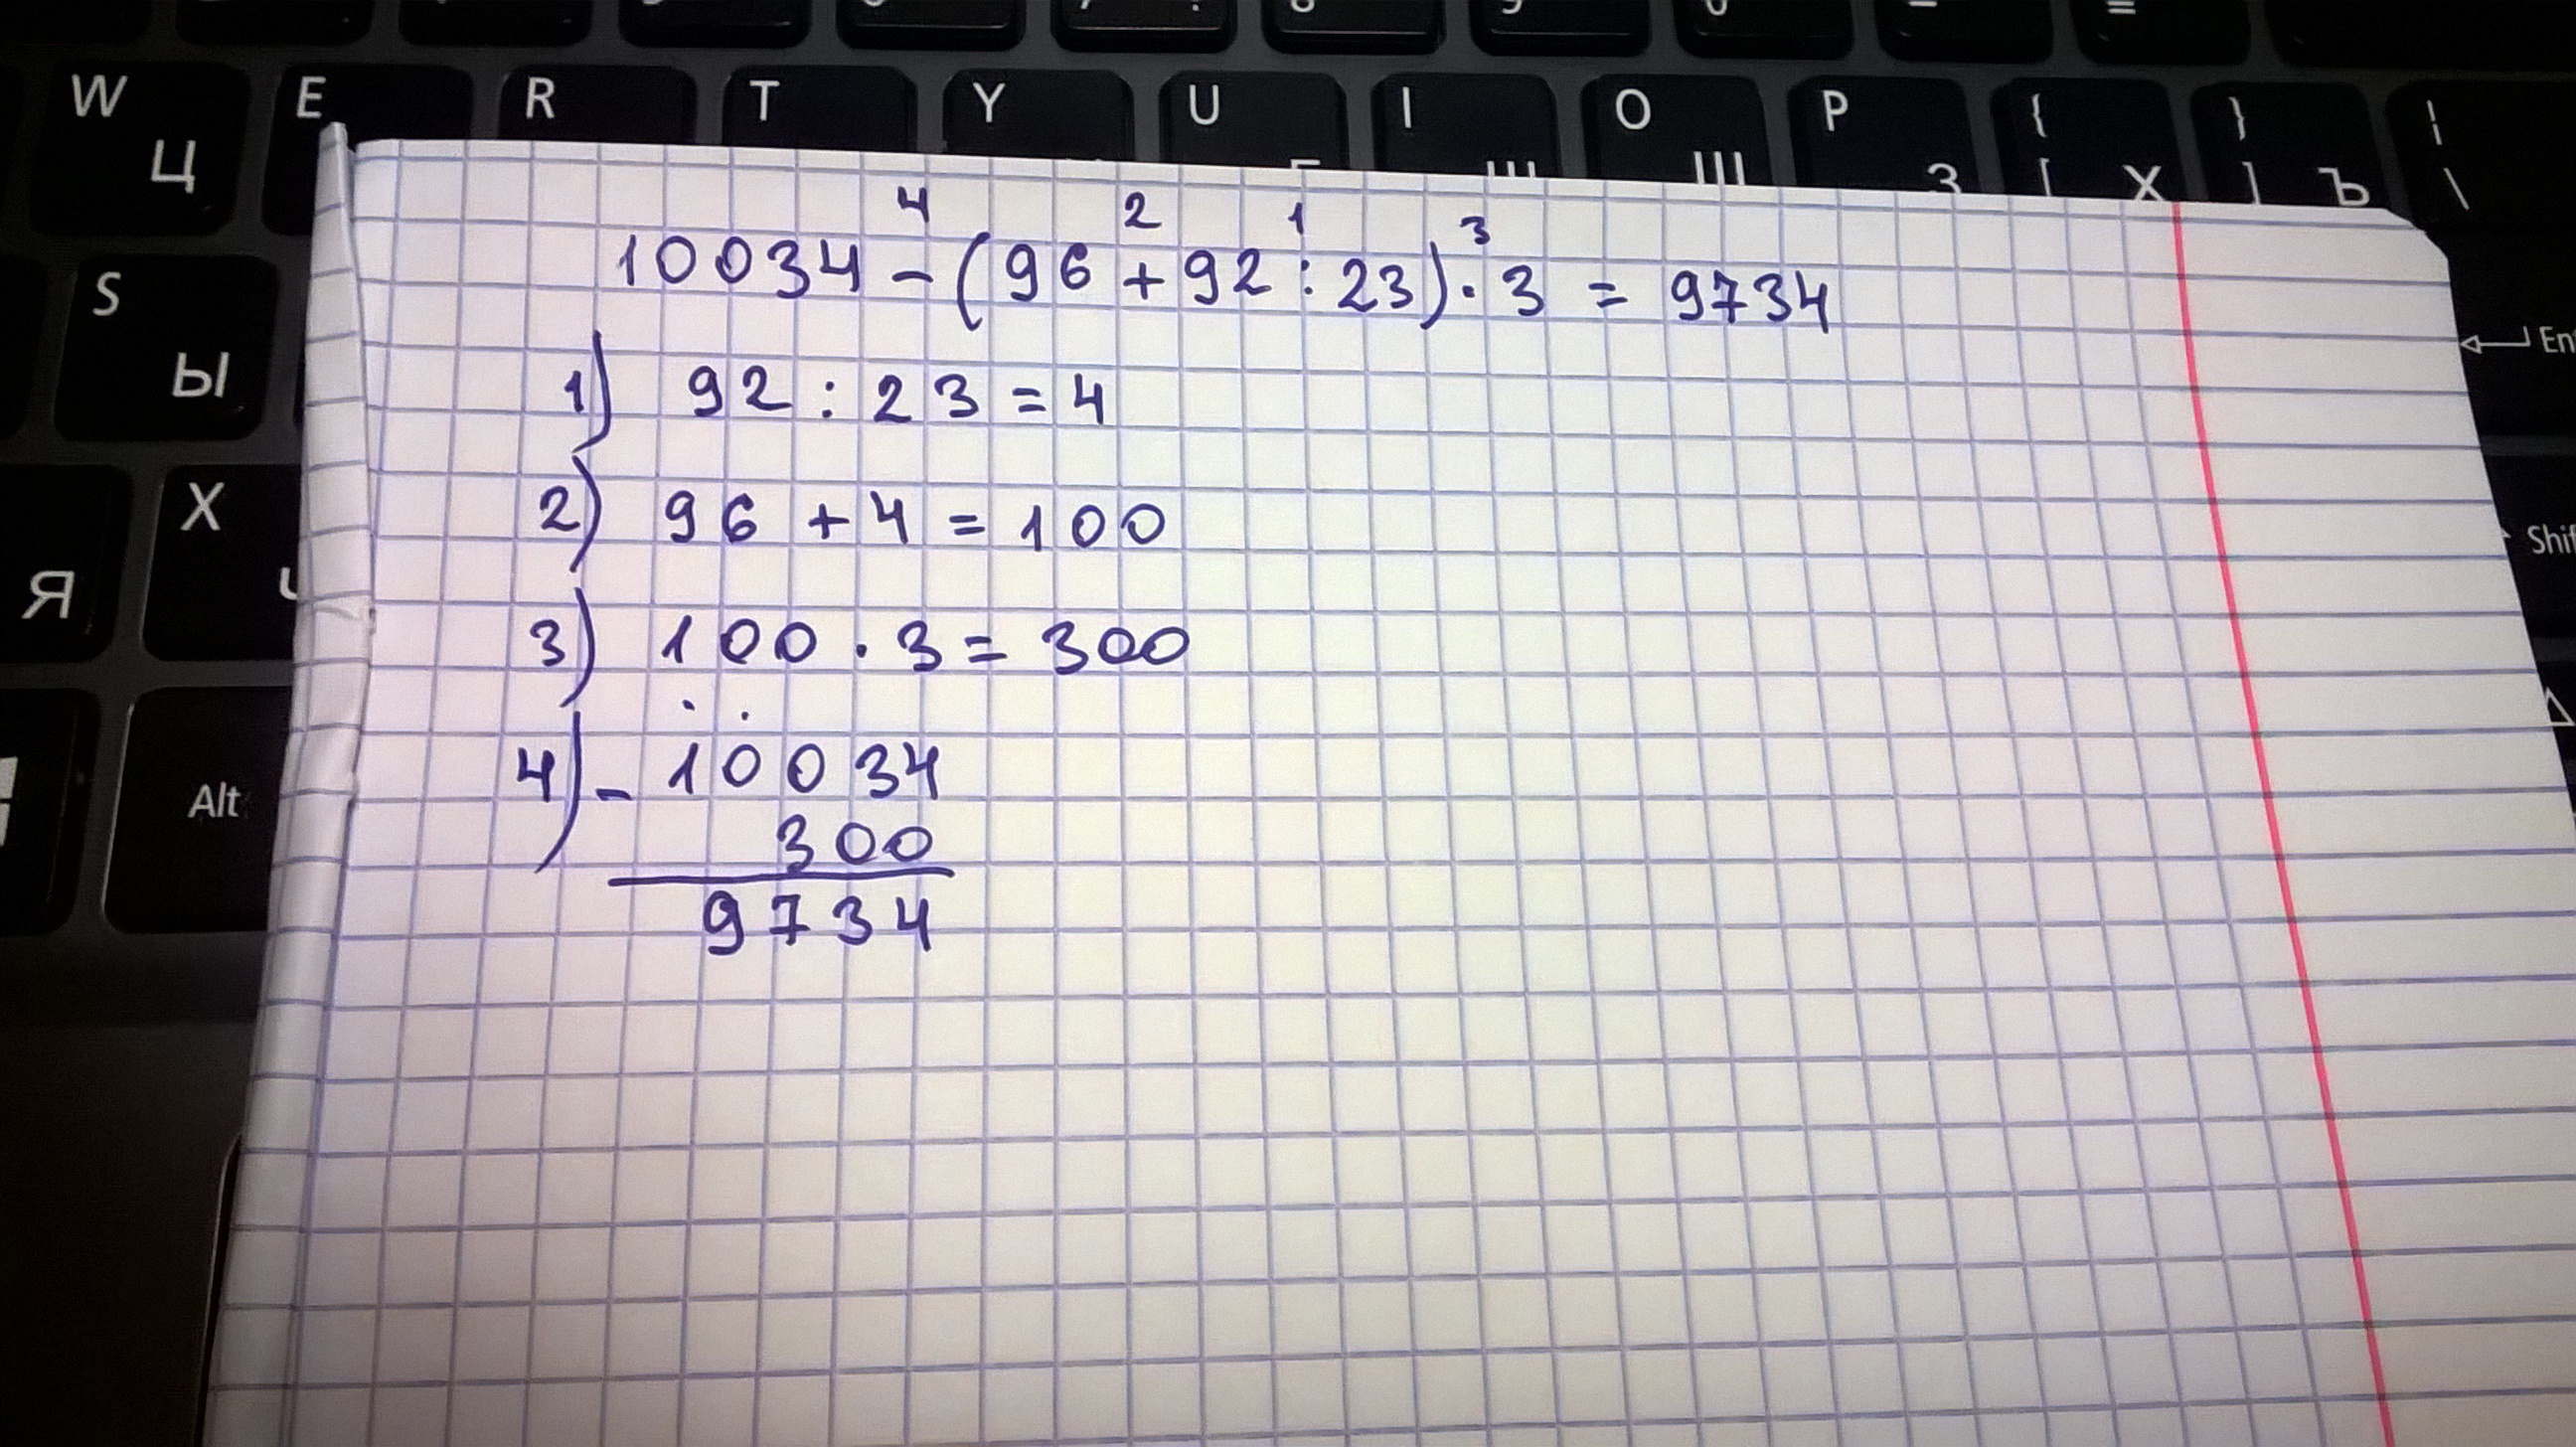 W E R T Y U I O P { } ¦
Ц Ш З [ Х ] Ъ \
S
Ы
X
Я
Alt
Shif
4 2 1 3
10034 - (96 + 92 : 23) · 3 = 9734
1) 92 : 23 = 4
2) 96 + 4 = 100
3) 100 · 3 = 300
4) - 10034
300
9734